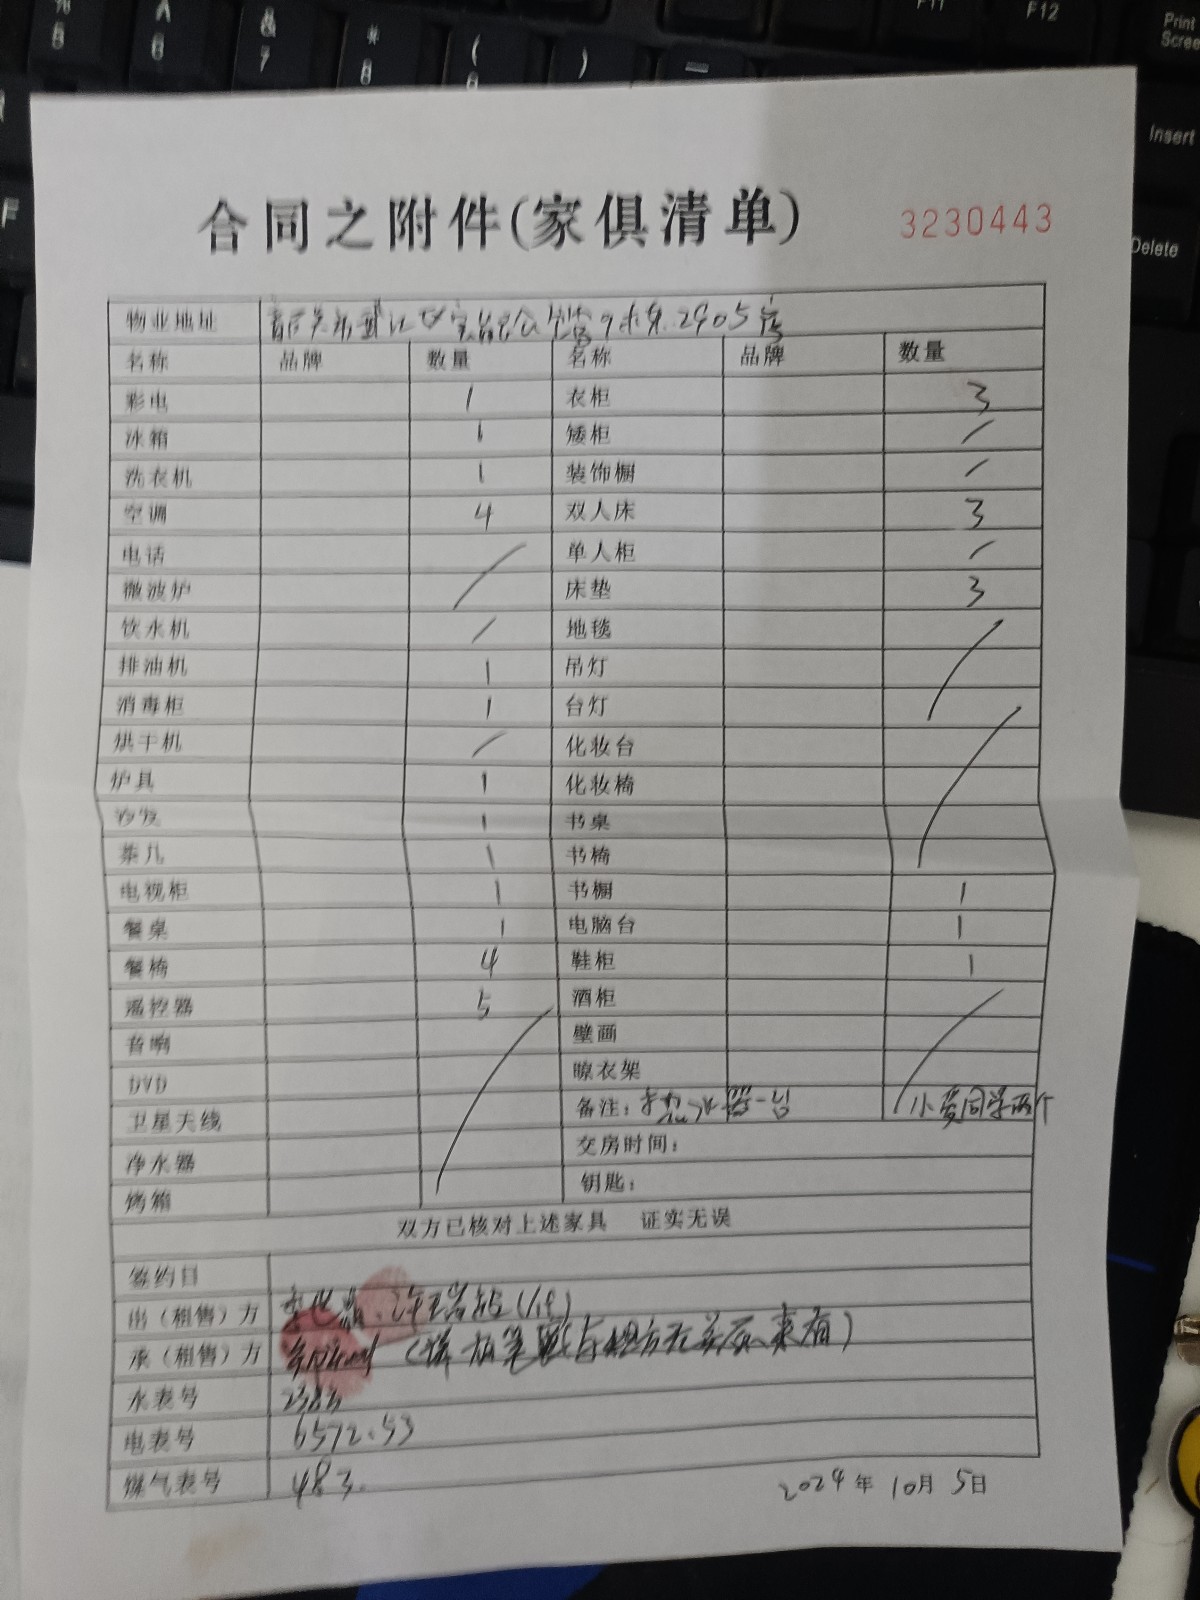 合同之附件(家俱清单) 3230443
物业地址 韶关市武江区 2905房
名称 品牌 数量 名称 品牌 数量
彩电 1 衣柜 3
冰箱 1 矮柜 /
洗衣机 1 装饰橱 /
空调 4 双人床 3
电话 单人柜 /
微波炉 / 床垫 3
饮水机 / 地毯
排油机 1 吊灯
消毒柜 1 台灯 /
烘干机 / 化妆台
炉具 1 化妆椅
沙发 1 书桌
茶几 1 书椅 /
电视柜 1 书橱 1
餐桌 1 电脑台 1
餐椅 4 鞋柜 1
遥控器 5 酒柜
音响 壁画
DVD 晾衣架 /
卫星天线 备注: 热水器一台 小爱同学两个
净水器 交房时间:
烤箱 / 钥匙:
双方已核对上述家具 证实无误
签约日
出(租售)方
承(租售)方
水表号
电表号 6572.53
煤气表号 483.
2024年 10月 5日